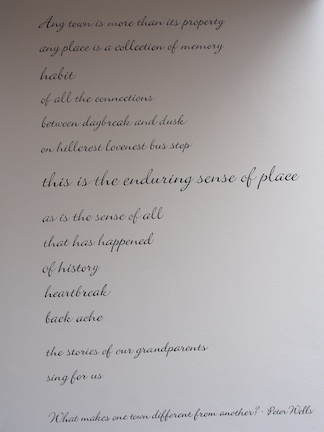 Any town is more than its property
any place is a collection of memory
habit
of all the connections
between daybreak and dusk
on hillcrest lovenest bus stop
this is the enduring sense of place
as is the sense of all
that has happened
of history
heartbreak
back ache
the stories of our grandparents
sing for us
What makes one town different from another? · Peter Wells